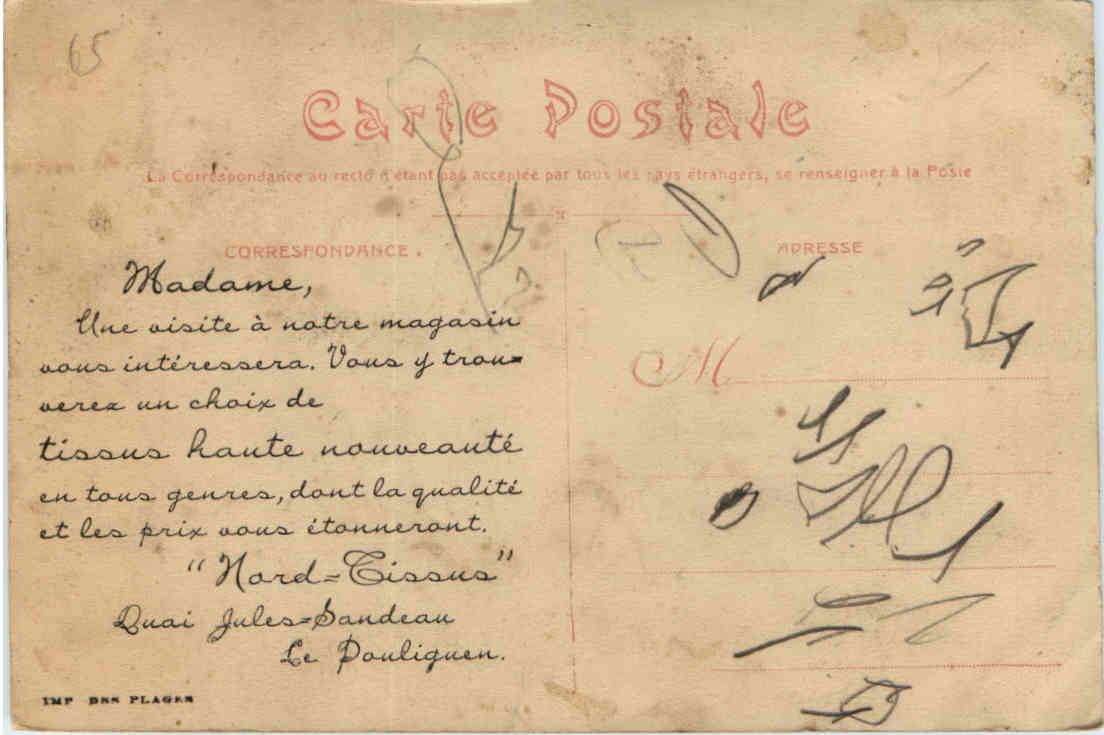 65
Carte Postale
La Correspondance au recto n'étant pas acceptée par tous les pays étrangers, se renseigner à la Poste
CORRESPONDANCE.
ADRESSE
Madame,
Une visite à notre magasin
vous intéressera. Vous y trou=
verez un choix de
tissus haute nouveauté
en tous genres, dont la qualité
et les prix vous étonneront.
"Nord=Tissus"
Quai Jules=Sandeau
Le Pouliguen.
IMP DES PLAGES
M